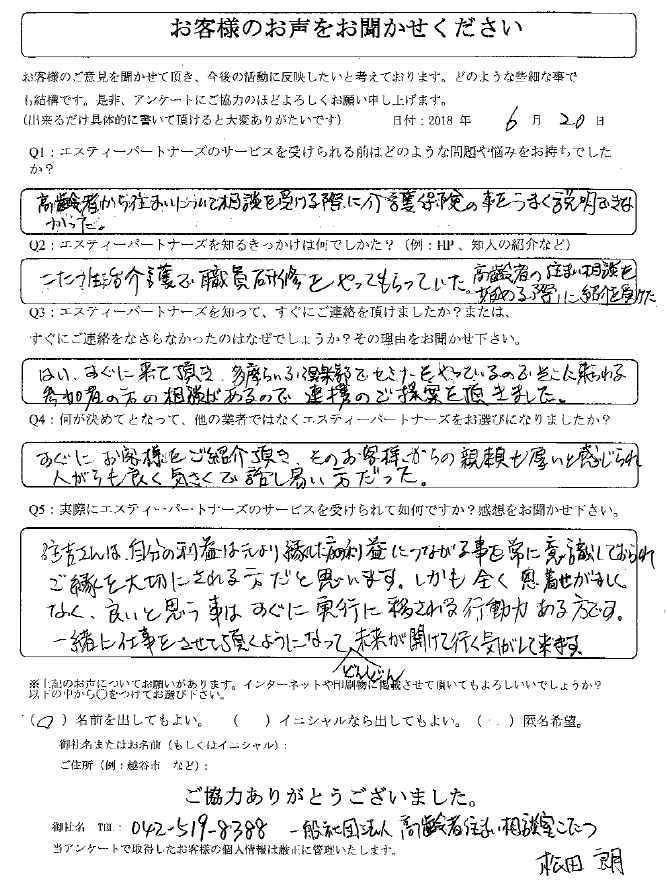 お客様のお声をお聞かせください
お客様のご意見を聞かせて頂き、今後の活動に反映したいと考えております。どのような些細な事で
も結構です。是非、アンケートにご協力のほどよろしくお願い申し上げます。
(出来るだけ具体的に書いて頂けると大変ありがたいです) 日付:2018 年 6 月 20 日
Q1:エスティーパートナーズのサービスを受けられる前はどのような問題や悩みをお持ちでした
か?
高齢者から住まいについて相談を受ける際に介護保険の事をうまく説明できな
かった。
Q2:エスティーパートナーズを知るきっかけは何でしたか?(例:HP、知人の紹介など)
こたつ生活介護で職員研修をやってもらっていた。高齢者の住まい相談を
始める際に紹介を受けた
Q3:エスティーパートナーズを知って、すぐにご連絡を頂けましたか?または、
すぐにご連絡をなさらなかったのはなぜでしょうか?その理由をお聞かせ下さい。
はい、すぐに来て頂き、多摩らいふ倶楽部でセミナーをやっているのでそこに来られる
参加者の方の相談があるので連携のご提案を頂きました。
Q4:何が決めてとなって、他の業者ではなくエスティーパートナーズをお選びになりましたか?
すぐにお客様をご紹介頂き、そのお客様からの親頼も厚いと感じられ
人がらも良く気さくで話し易い方だった。
Q5:実際にエスティーパートナーズのサービスを受けられて如何ですか?感想をお聞かせ下さい。
さんは、自分の利益は元より縁した方の利益につながる事を常に意識しておられ
ご縁を大切にされる方だと思います。しかも全く恩着せがましく
なく、良いと思う事はすぐに実行に移される行動力ある方です。
一緒に仕事をさせて頂くようになって、どんどん未来が開けて行く気がして来ます。
※上記のお声についてお願いがあります。インターネットや印刷物に掲載させて頂いてもよろしいいでしょうか?
以下の中から○をつけてお選び下さい。
(○)名前を出してもよい。 ( )イニシャルなら出してもよい。( )匿名希望。
御社名またはお名前(もしくはイニシャル):
ご住所(例:越谷市 など):
ご協力ありがとうございました。
御社名 TEL: 042-519-8388 一般社団法人 高齢者住まい相談室こたつ
当アンケートで取得したお客様の個人情報は厳正に管理いたします。
松田 朗